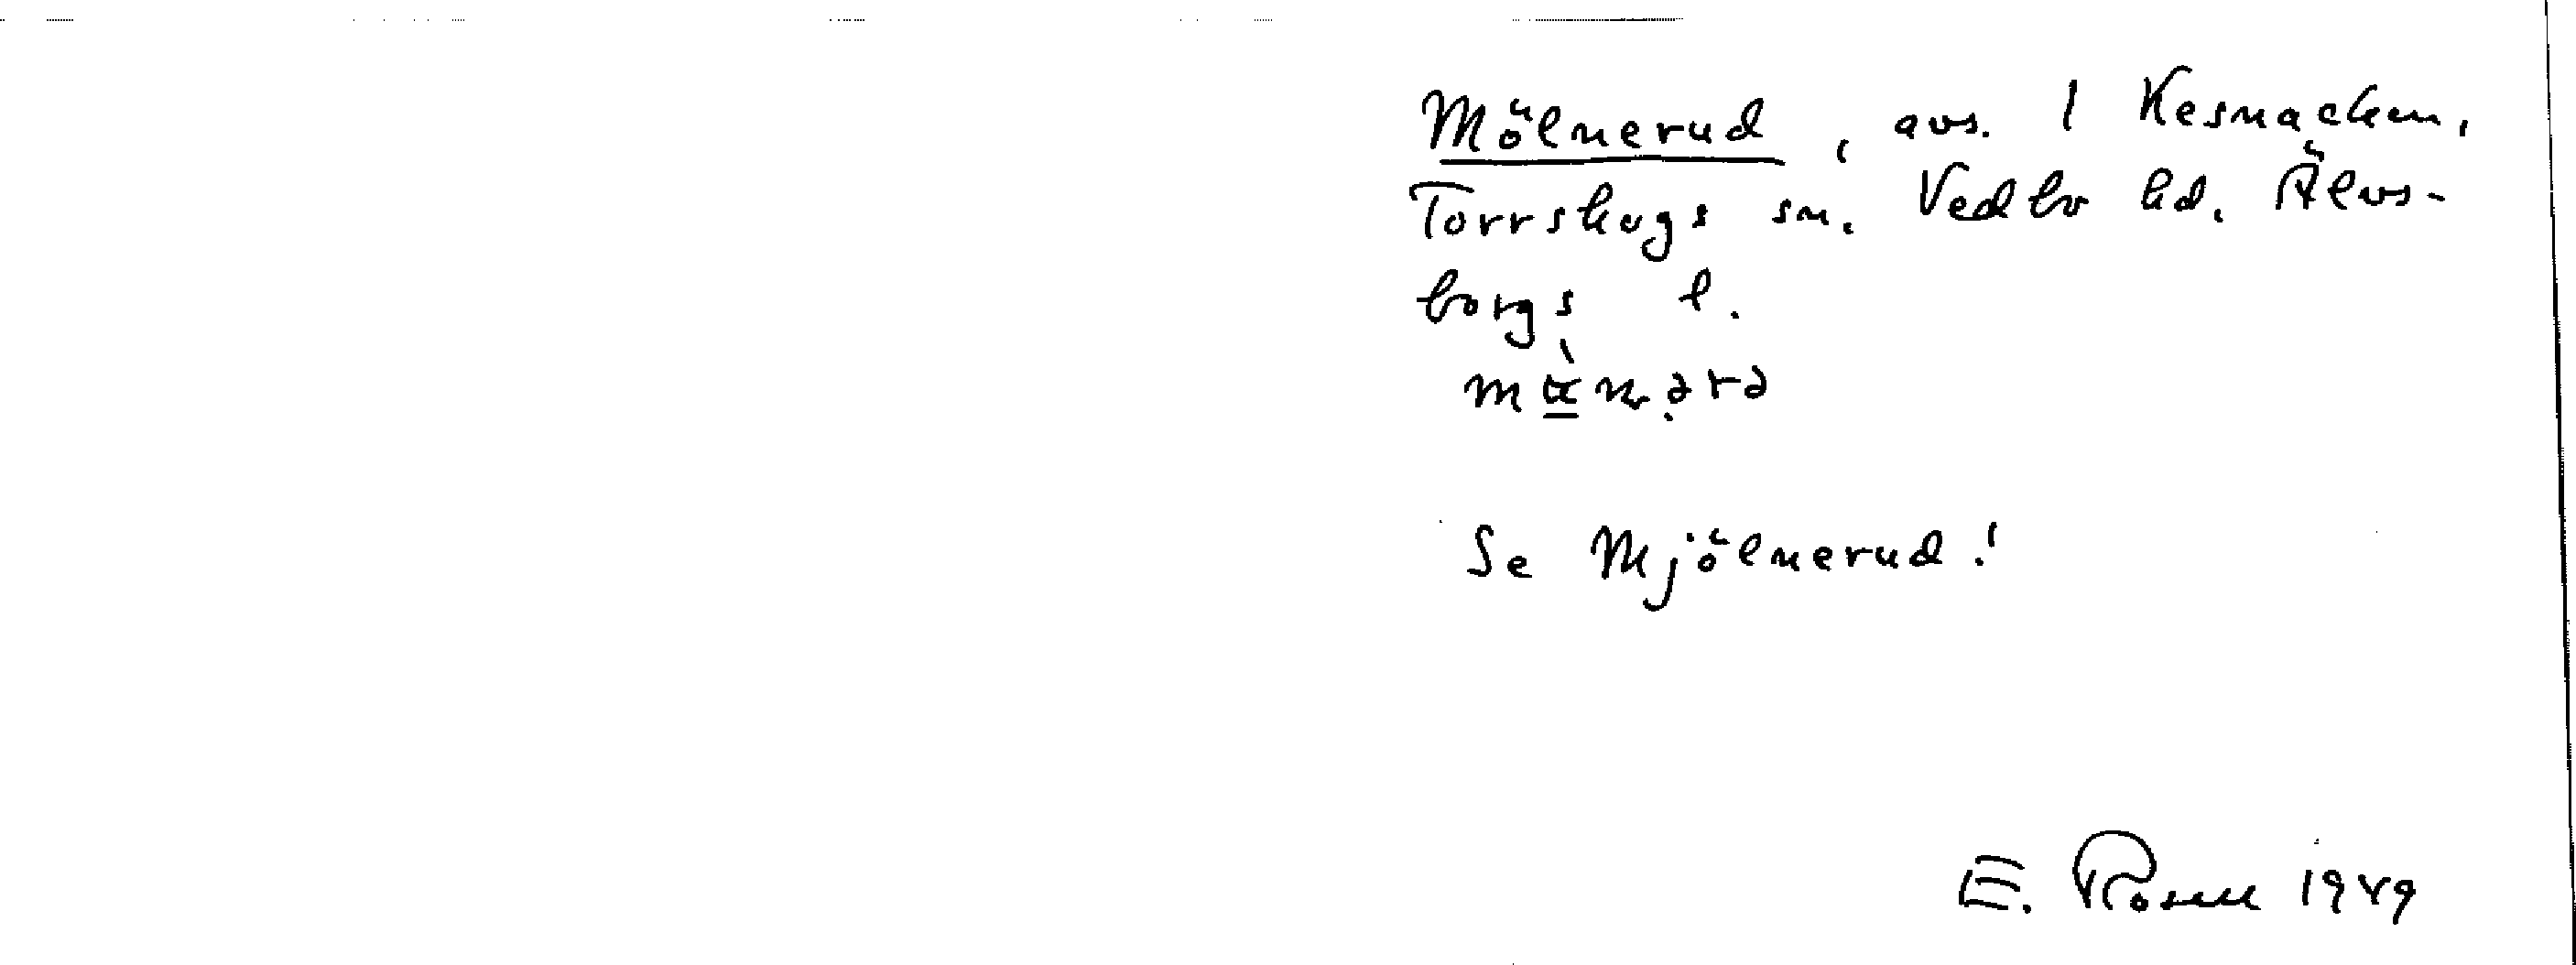 Mölnerud, avs. 1 Kesnacken,
Torrskogs sn. Vedbo hd. Älvs-
borgs l.
Se Mjölnerud!
E. Rosell 1949